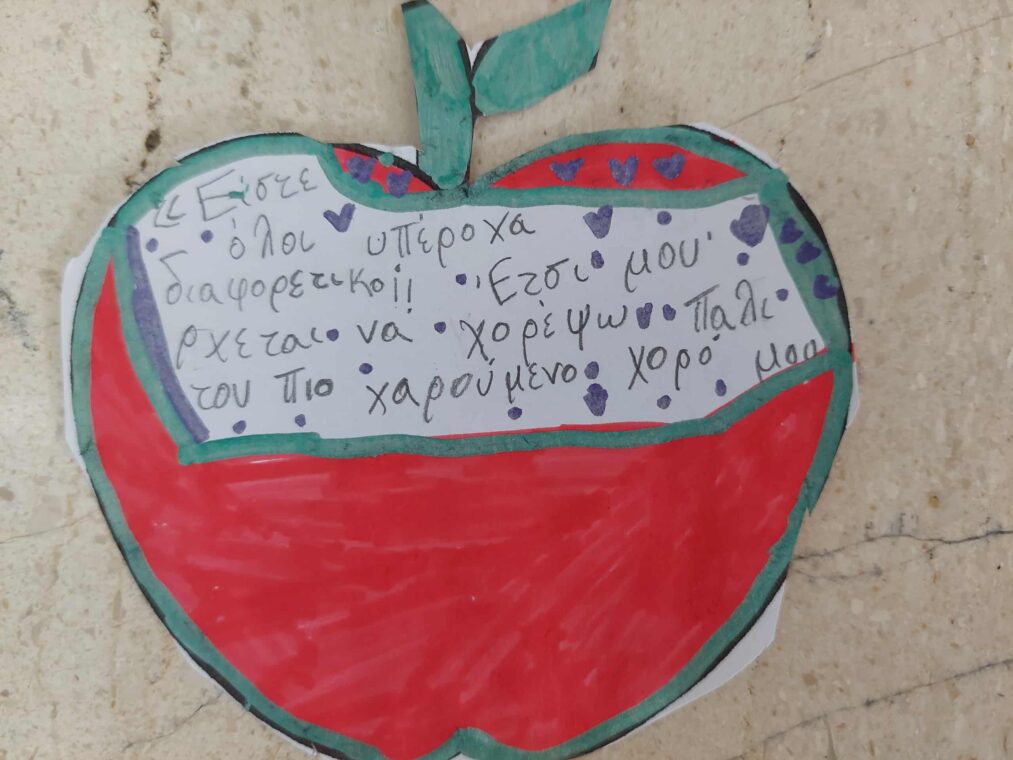 «Είστε
όλοι υπέροχα
διαφορετικοί!
Έτσι μου'
ρχεται να χορέψω πάλι
τον πιο χαρούμενο χορό μου